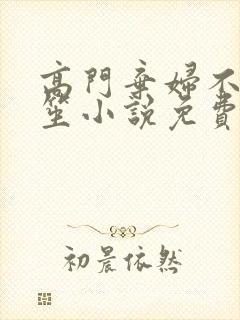 高門棄婦不
笙小説免費
初晨依然